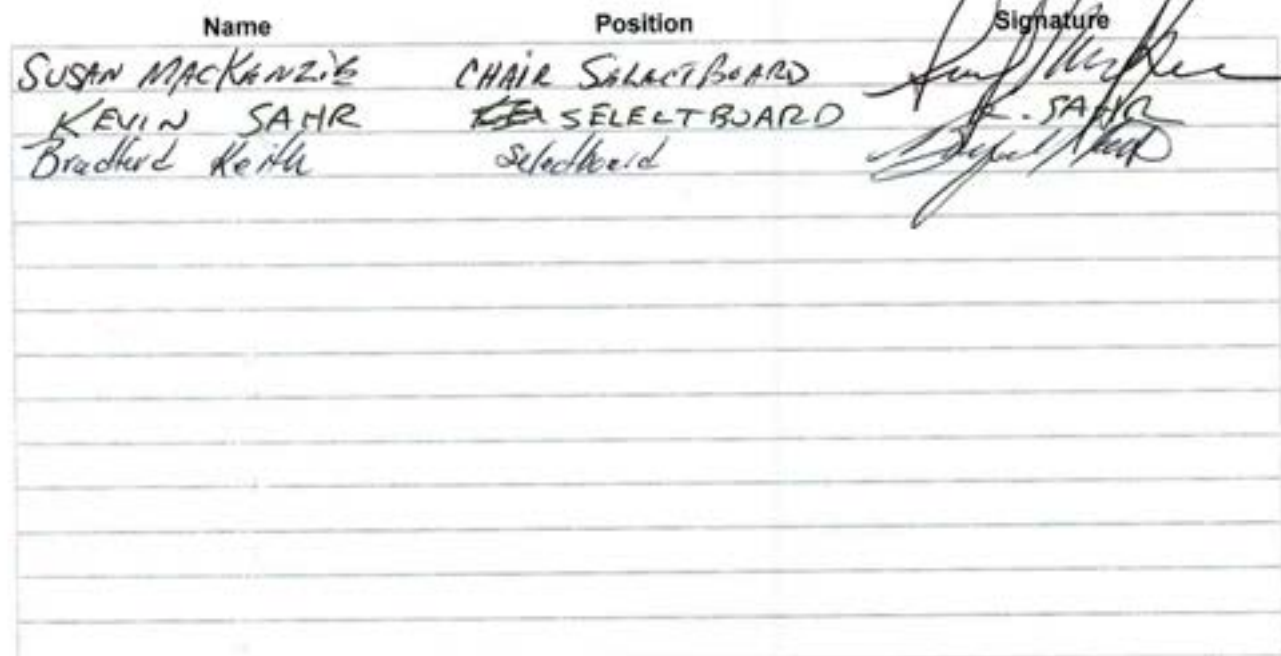 Name Position Signature
SUSAN MACKENZIE CHAIR SELECTBOARD
KEVIN SAHR SELELTBOARD K. SAHR
Bradford Keith Selectboard